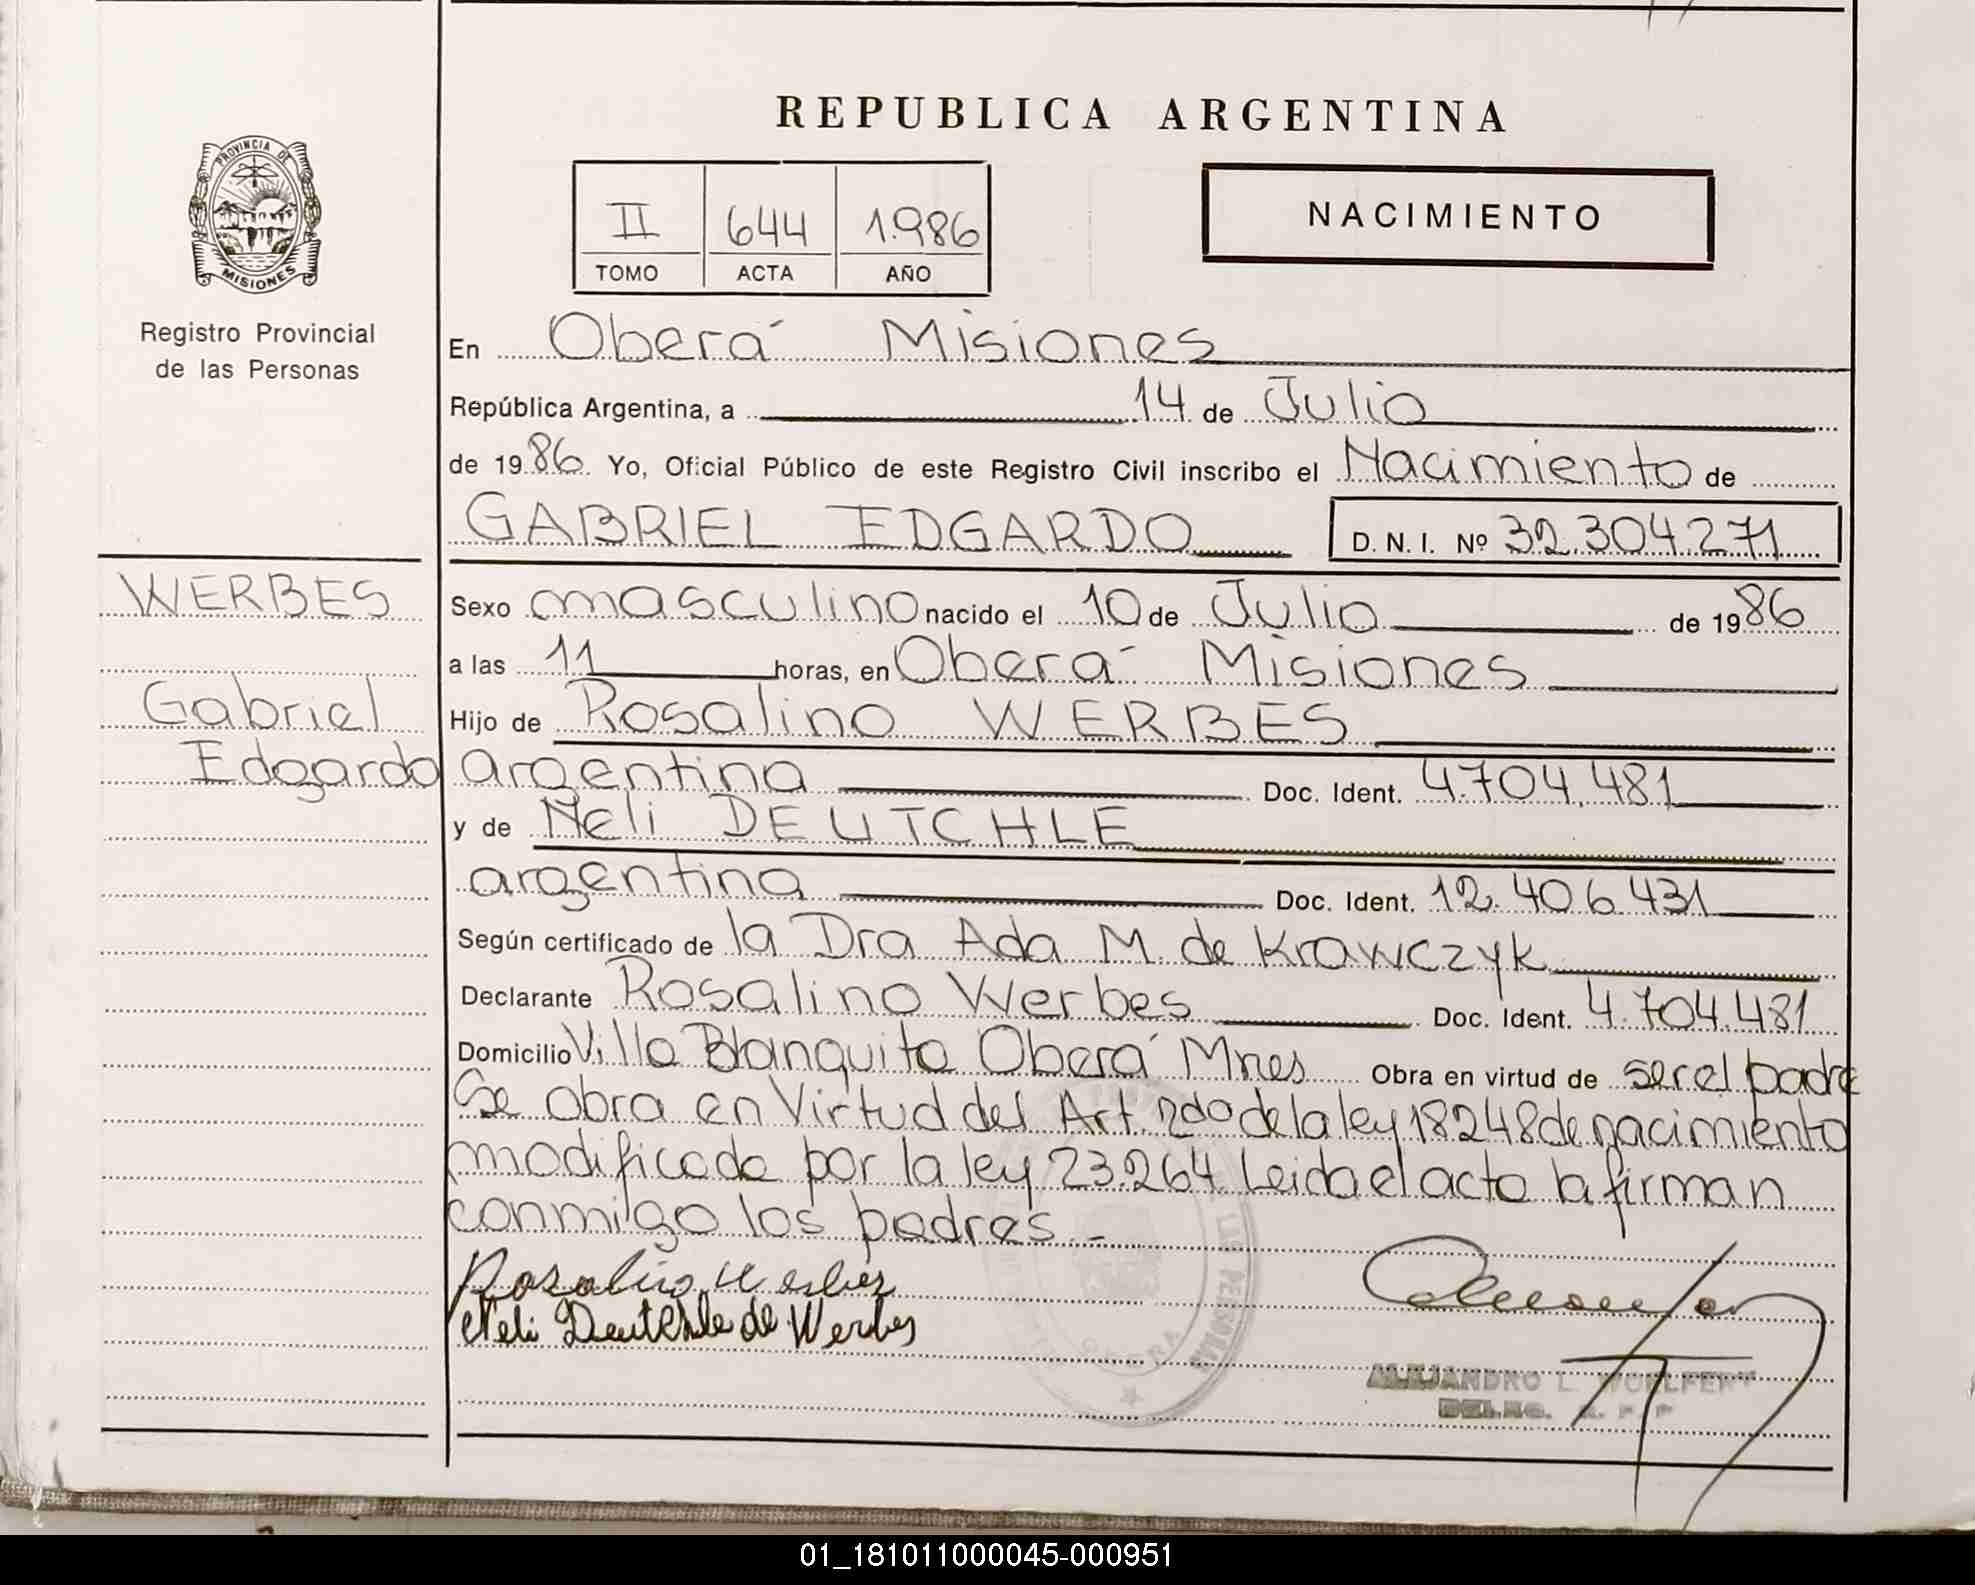 REPUBLICA ARGENTINA
PROVINCIA DE
MISIONES
Registro Provincial
de las Personas
II 644 1.986
TOMO ACTA AÑO
NACIMIENTO
En Oberá Misiones
República Argentina, a 14 de Julio
de 1986. Yo, Oficial Público de este Registro Civil inscribo el Nacimiento de
GABRIEL EDGARDO D. N. I. Nº 32.304.271
WERBES
Gabriel
Edgardo
Sexo masculino nacido el 10 de Julio de 1986
a las 11 horas, en Oberá Misiones
Hijo de Rosalino WERBES
argentina Doc. Ident. 4.704.481
y de Neli DEUTCHLE
argentina Doc. Ident. 12.406.431
Según certificado de la Dra Ada M. de Krawczyk
Declarante Rosalino Werbes Doc. Ident. 4.704.481
Domicilio Villa Blanquita Oberá Mnes Obra en virtud de ser el padre
Se obra en Virtud del Art 2do de la ley 18248 de nacimiento
modificada por la ley 23.264 Leida el acta la firman
conmigo los padres.-
Rosalino Werbes
Neli Deutchle de Werbes
LAS PERSONAS
OBERA
ALEJANDRO L.
DELEG. R. P. P.
01_181011000045-000951